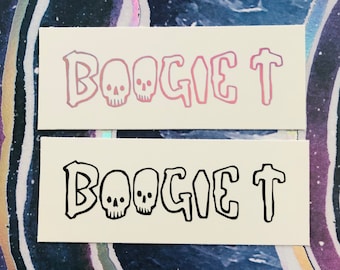 BOOGIE T
BOOGIE T